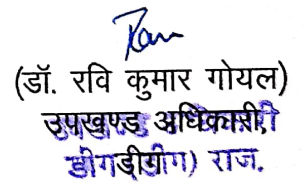 (डॉ. रवि कुमार गोयल)
उपखण्ड अधिकारी,
डीग राज.